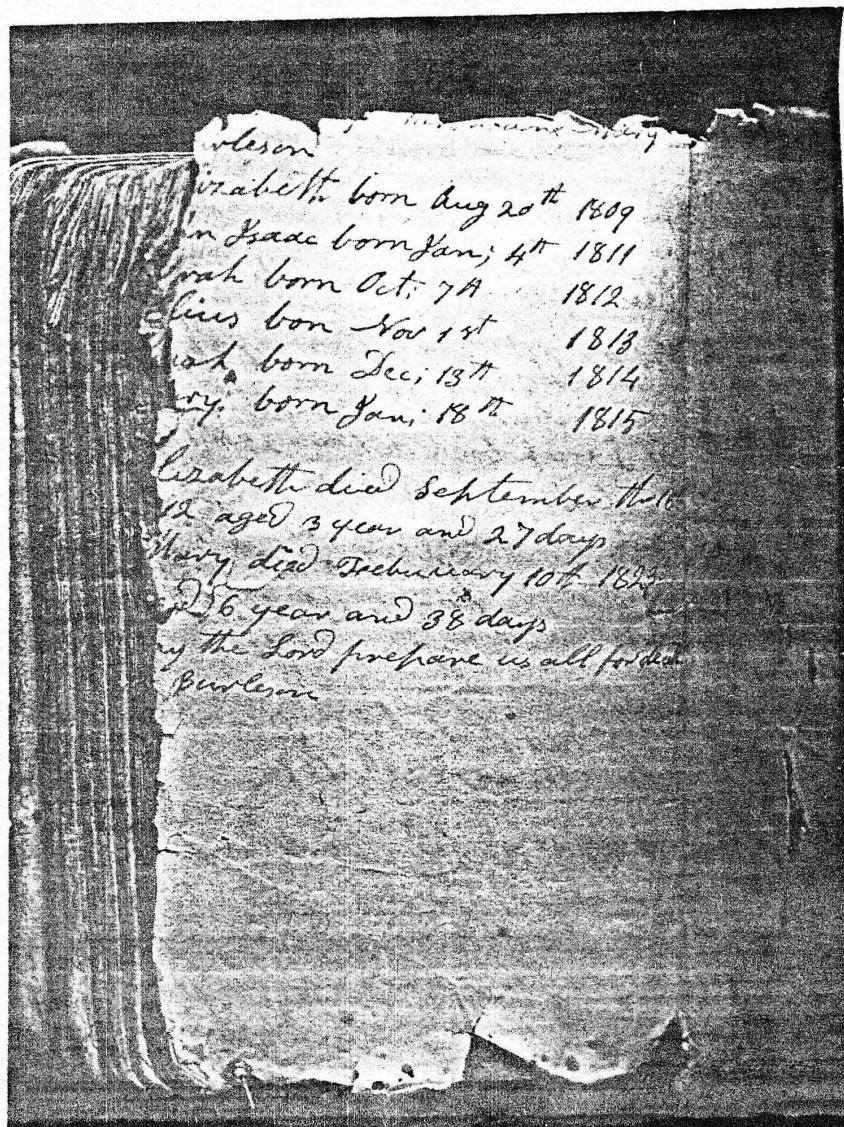 urleson
izabeth born Aug 20th 1809
n Isaac born Jan; 4th 1811
rah born Oct; 7th 1812
lius bon Nov 1st 1813
iah born Dec; 13th 1814
ary born Jan; 18th 1815
lizabeth died September th 16
12 aged 3 year and 27 days
Mary died Febuary 10th 182
ed 6 year and 38 days
ay the Lord prepare us all for death
Burleson